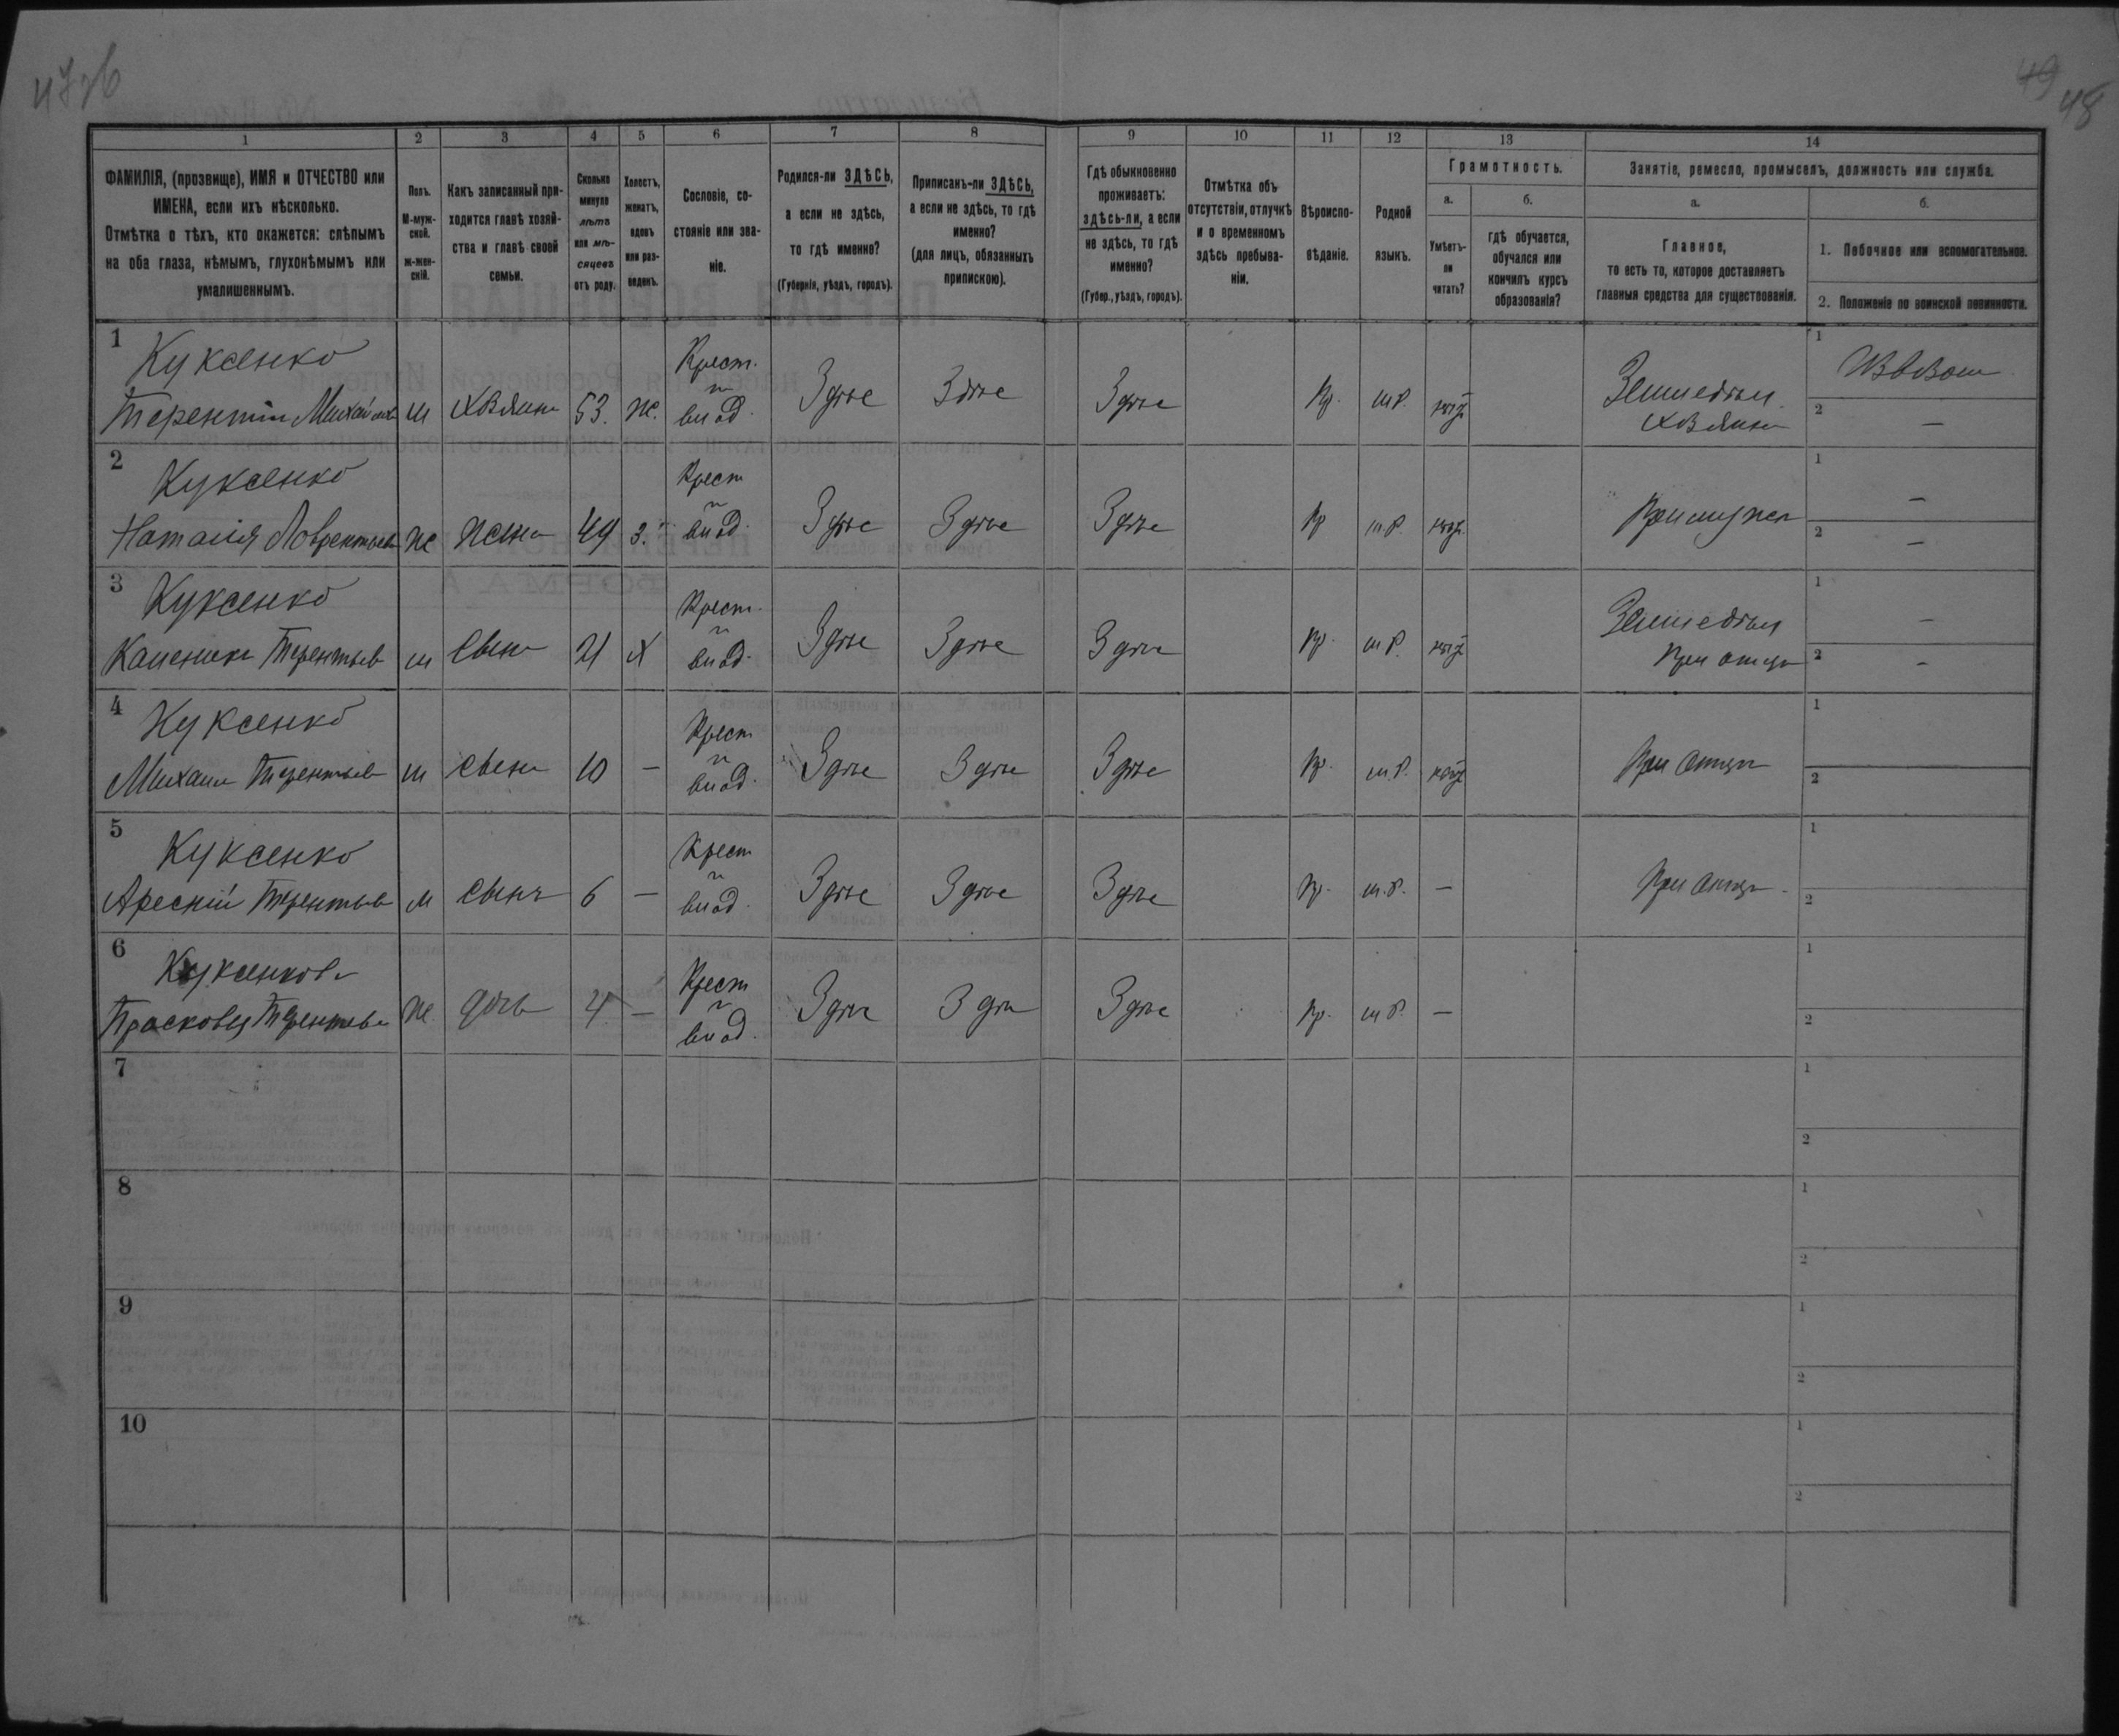 47об
49
48
1
2
3
4
5
6
7
8
9
10
11
12
13
14
ФАМИЛІЯ, (прозвище), ИМЯ и ОТЧЕСТВО или
ИМЕНА, если ихъ нѣсколько.
Отмѣтка о тѣхъ, кто окажется: слѣпымъ
на оба глаза, нѣмымъ, глухонѣмымъ или
умалишеннымъ.
Полъ.
М-муж-
ской.
ж-жен-
скій.
Какъ записанный при-
ходится главѣ хозяй-
ства и главѣ своей
семьи.
Сколько
минуло
лѣтъ
или мѣ-
сяцевъ
отъ роду.
Холостъ,
женатъ,
вдовъ
или раз-
веденъ.
Сословіе, со-
стояніе или зва-
ніе.
Родился-ли ЗДѢСЬ,
а если не здѣсь,
то гдѣ именно?
(Губернія, уѣздъ, городъ).
Приписанъ-ли ЗДѢСЬ,
а если не здѣсь, то гдѣ
именно?
(для лицъ, обязанныхъ
припискою).
Гдѣ обыкновенно
проживаетъ:
здѣсь-ли, а если
не здѣсь, то гдѣ
именно?
(Губер., уѣздъ, городъ).
Отмѣтка объ
отсутствіи, отлучкѣ
и о временномъ
здѣсь пребыва-
ніи.
Вѣроиспо-
вѣданіе.
Родной
языкъ.
Грамотность.
а.
Умѣетъ-
ли
читать?
б.
гдѣ обучается,
обучался или
кончилъ курсъ
образованія?
Занятіе, ремесло, промыселъ, должность или служба.
а.
Главное,
то есть то, которое доставляетъ
главныя средства для существованія.
б.
1. Побочное или вспомогательное.
2. Положеніе по воинской повинности.
1
Куксенко
Терентій Михайлов м хозяинъ 53. ж.
Крест.
и
влад.
Здѣсь Здѣсь Здѣсь Пр. м.р. нѣтъ
Земледѣл.
хозяинъ
1 Извозом
2 —
2
Куксенко
Наталія Лаврентьева ж жена 49 з.
Крест
и
влад.
Здѣсь Здѣсь Здѣсь Пр м.р. нѣтъ
При мужѣ
1 —
2 —
3
Куксенко
Терентьев м сынъ 21 х
Крест.
и
влад.
Здѣсь Здѣсь Здѣсь Пр. м р. нѣтъ
Земледѣл
При отцѣ
1 —
2 -
4
Куксенко
Михаил Терентьев м сынъ 10 —
Крест
и
влад.
Здѣсь Здѣсь Здѣсь Пр. м.р. нѣтъ
При отцѣ
1
2
5
Куксенко
Арсеній Терентьев м сынъ 6 —
Крест
и
влад.
Здѣсь Здѣсь Здѣсь Пр. м.р. —
При отцѣ
1
2
6
Куксенкова
Прасковья Терентьева ж. дочь 4 —
Крест
и
влад.
Здѣсь Здѣсь Здѣсь Пр. м р. —
1
2
7
1
2
8
1
2
9
1
2
10
1
2